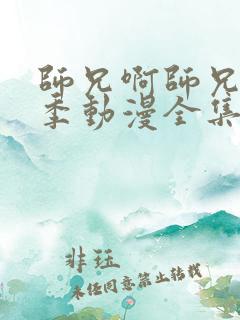 師兄啊師兄
季動漫全集
非珏
未经同意禁止转载